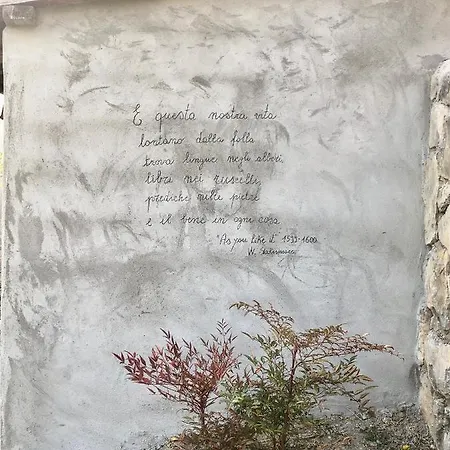 E questa nostra vita
lontano dalla folla
trova lingue negli alberi,
libri nei ruscelli,
prediche nelle pietre
e il bene in ogni cosa
"As you like it" 1599-1600
W. Shakespeare